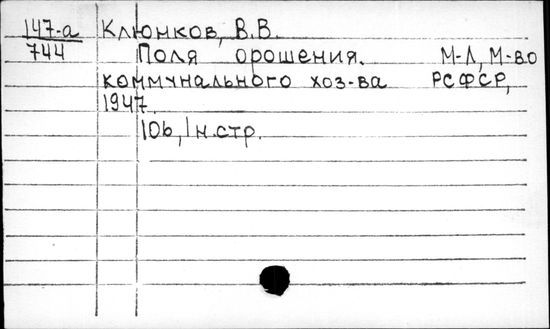 147-а Клюмков, В.В.
744 Поля орошения. М-Л, М-во
коммунального хоз-ва РСФСР,
1947.
106, 1 н.стр.